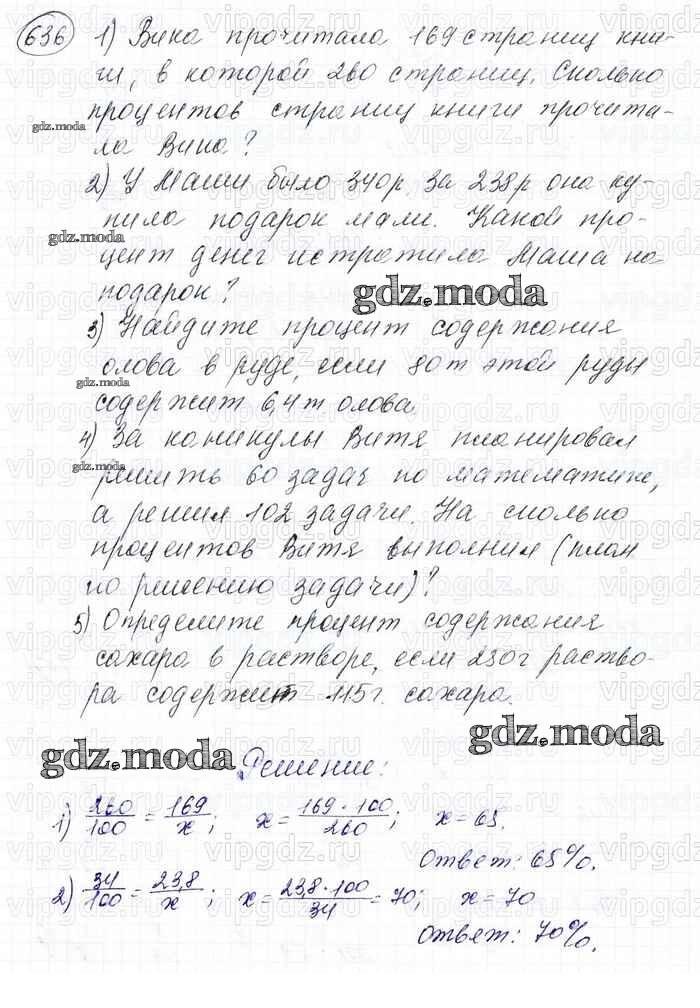 636 1) Вика прочитала 169 страниц кни-
ги, в которой 260 страниц. Сколько
процентов страниц книги прочита-
gdz.moda
ла Вика?
2) У Маши было 340 р. За 238 р она ку-
пила подарок маме. Какой про-
gdz.moda
цент денег истратила Маша на
подарок?
gdz.moda
3) Найдите процент содержания
олова в руде, если 80 т этой руды
gdz.moda
содержит 6,4 т олова.
4) За каникулы Витя планировал
gdz.moda
решить 60 задач по математике,
а решил 102 задачи. На сколько
процентов Витя выполнил (план
по решению задачи)?
5) Определите процент содержания
сахара в растворе, если 230 г раство-
ра содержит 115 г. сахара.
gdz.moda
gdz.moda
Решение:
1) 260/100 = 169/x; x = 169·100/260; x = 65.
Ответ: 65%.
2) 34/100 = 23,8/x; x = 23,8·100/34 = 70; x = 70
Ответ: 70%.